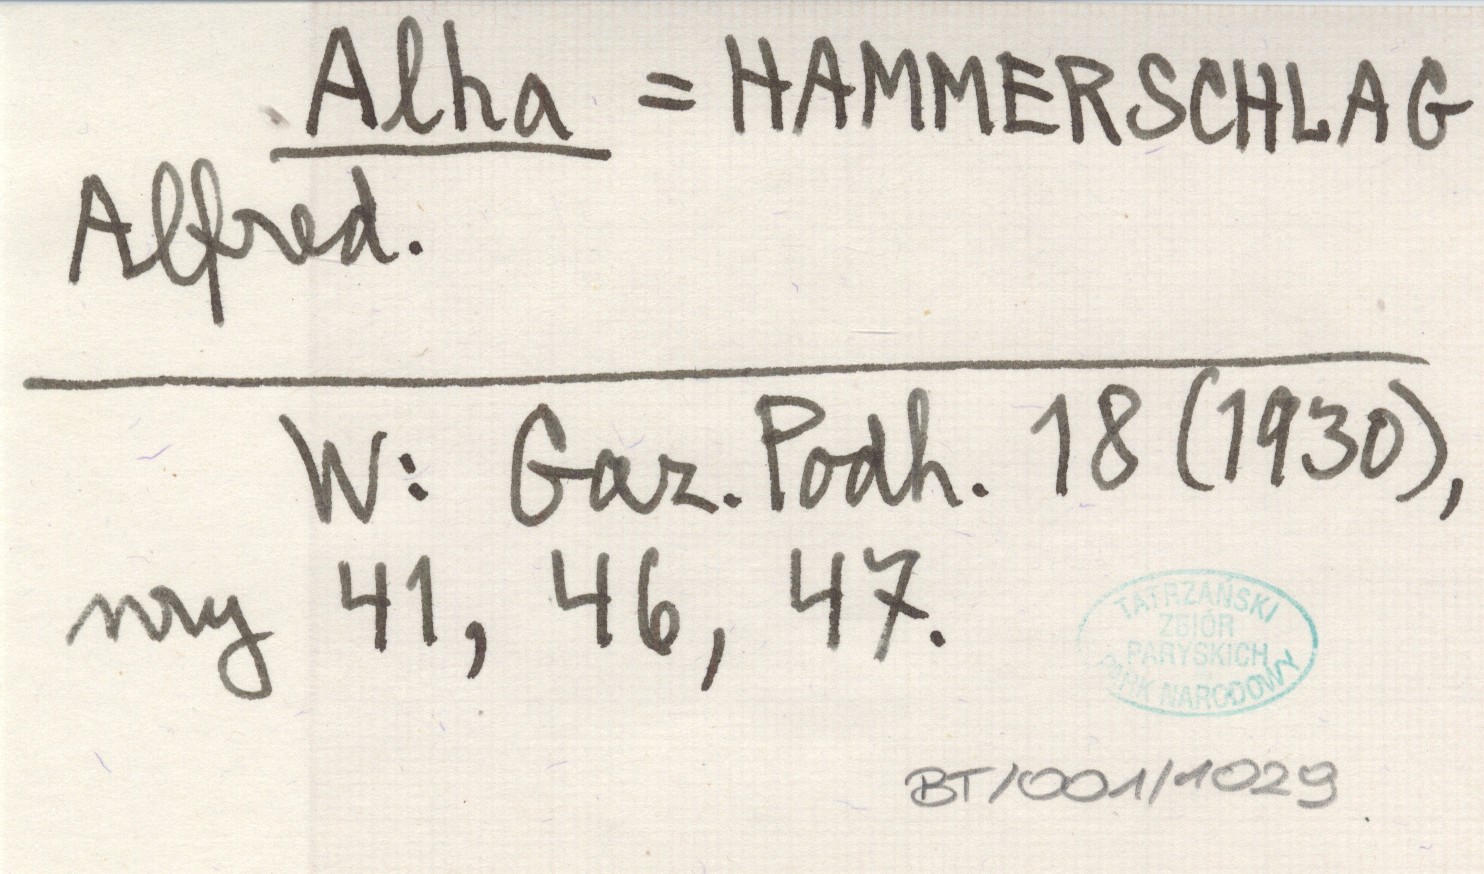 Alha = HAMMERSCHLAG
Alfred.
W: Gaz. Podh. 18 (1930),
nry 41, 46, 47.
TATRZAŃSKI
ZBIÓR
PARYSKICH
PARK NARODOWY
BT/001/1029